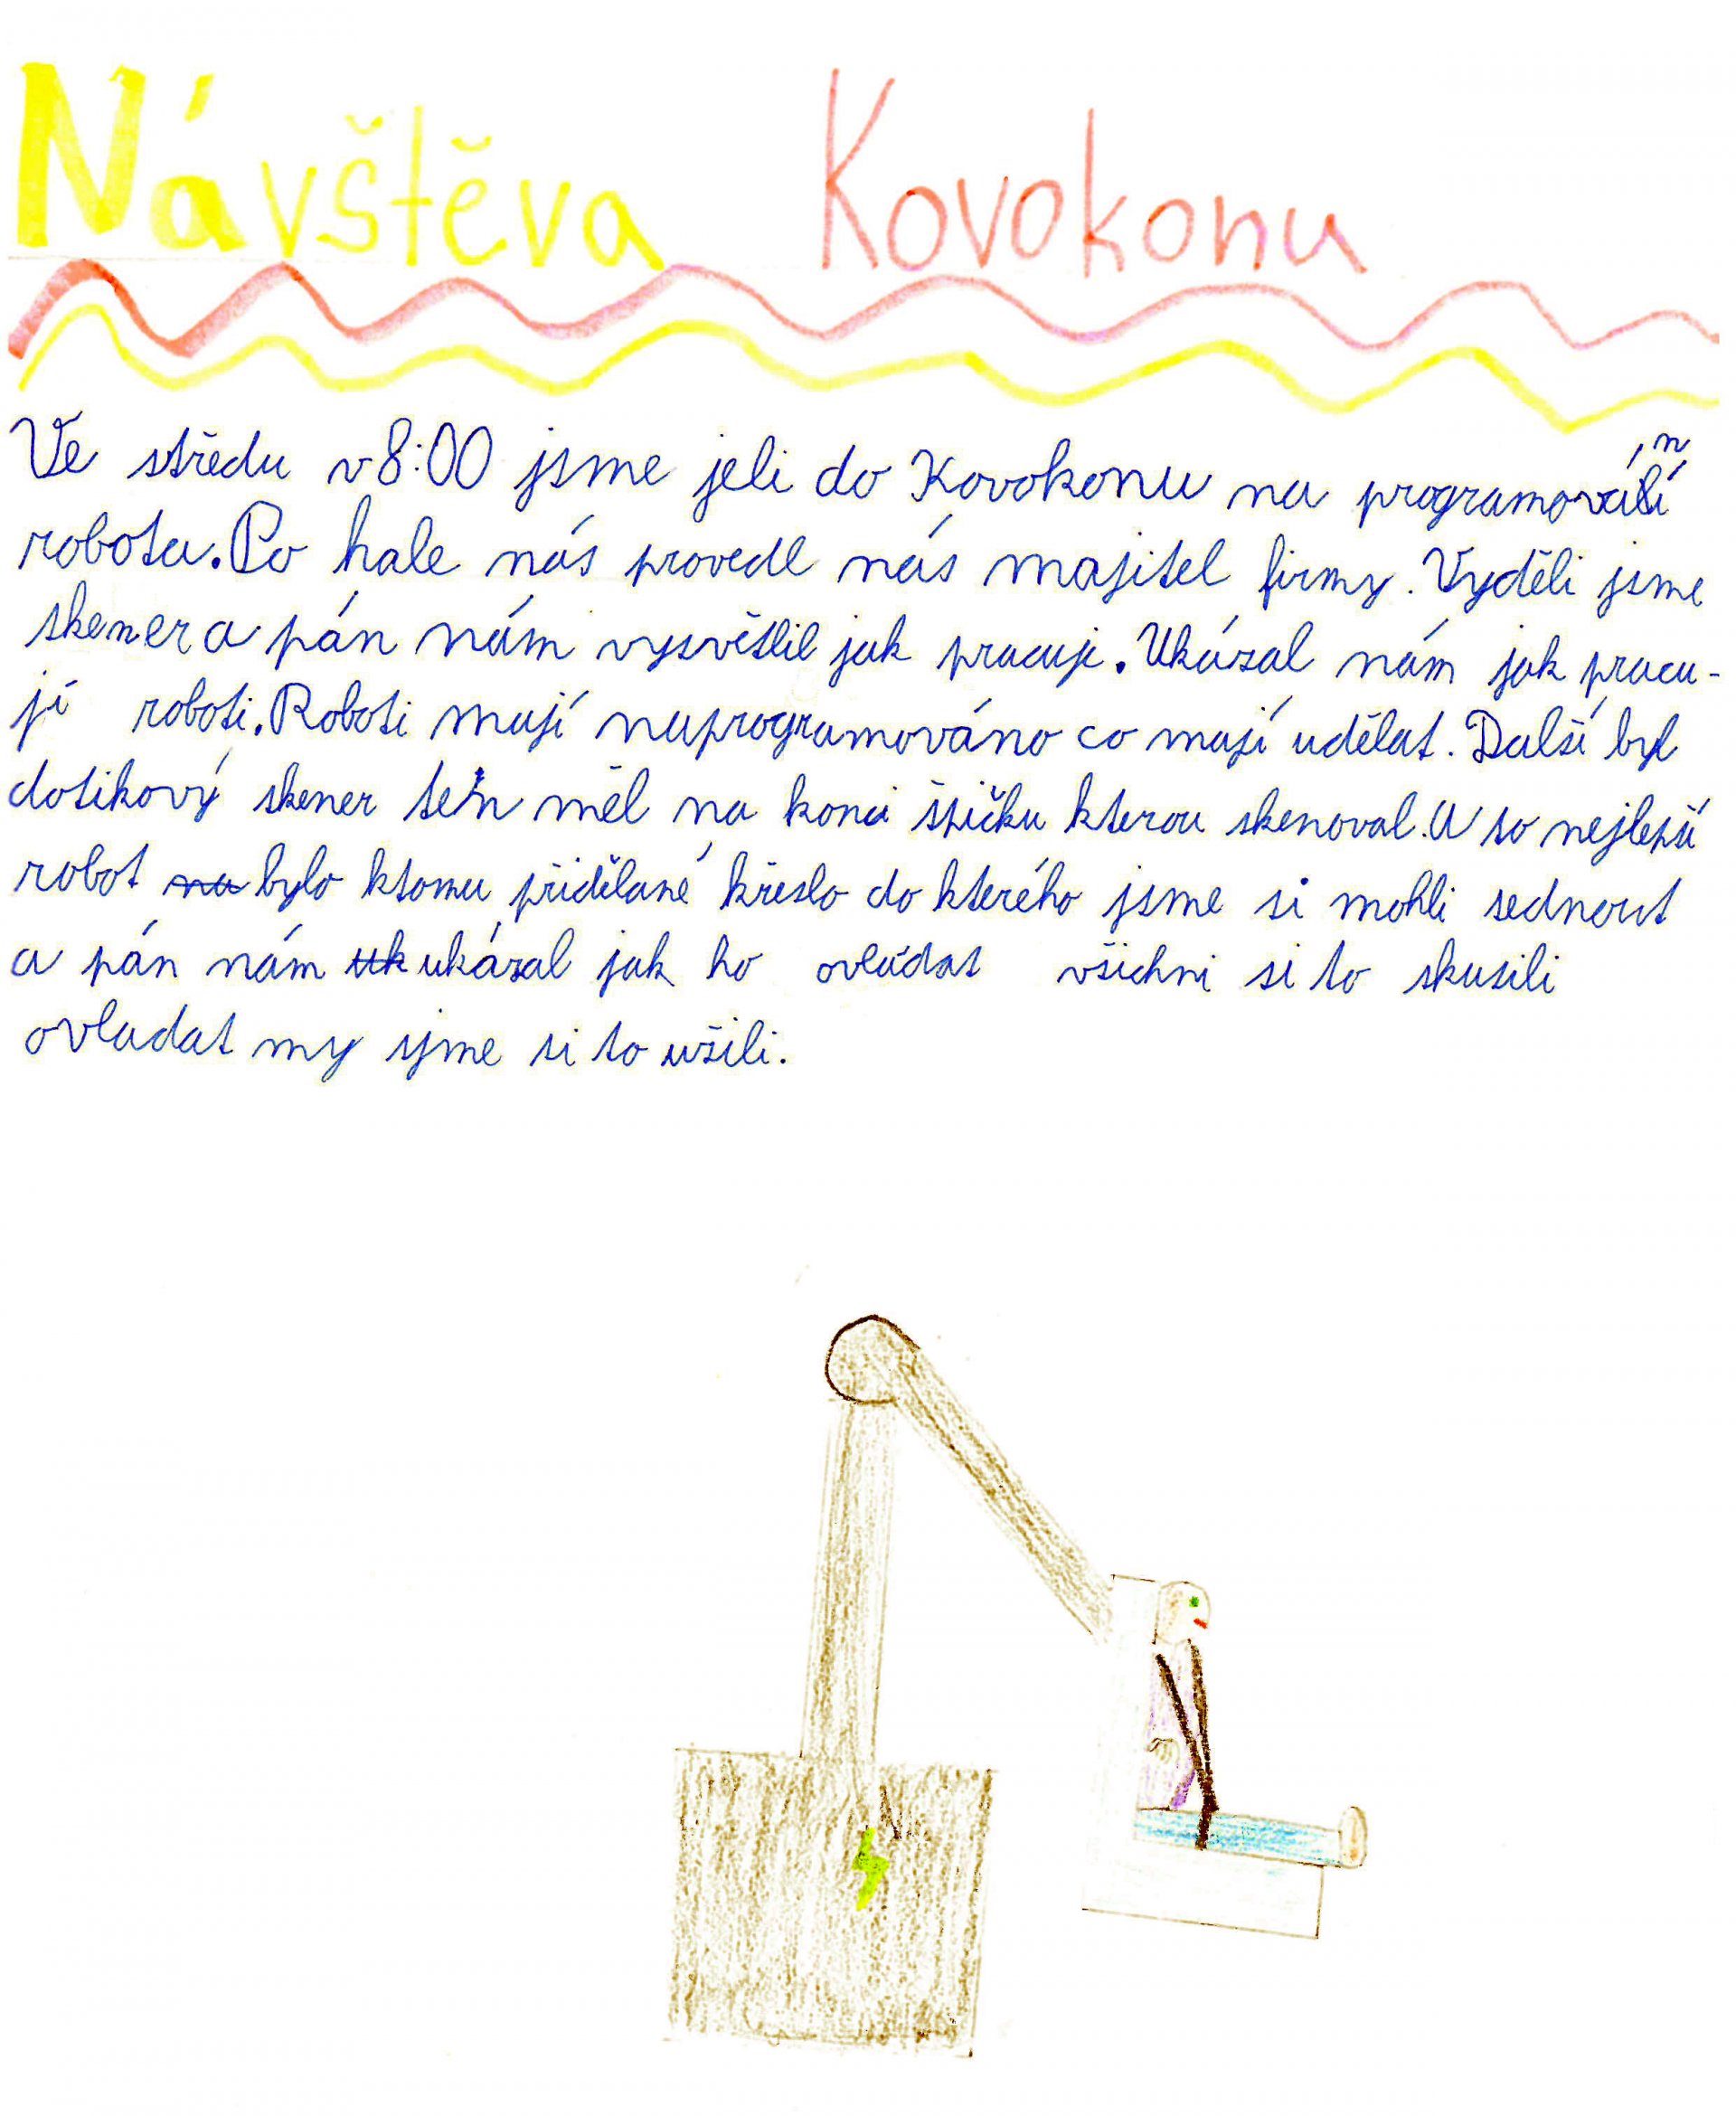 Návštěva Kovokonu
Ve středu v 8:00 jsme jeli do Kovokonu na programování
robota. Po hale nás provedl nás majitel firmy. Vyděli jsme
skener a pán nám vysvětlil jak pracuje. Ukázal nám jak pracu-
jí roboti. Roboti mají naprogramováno co mají udělat. Další byl
dotikový skener ten měl na konci špičku kterou skenoval. A to nejlepší
robot na bylo ktomu přidělané křeslo do kterého jsme si mohli sednout
a pán nám uk ukázal jak ho ovládat všichni si to skusili
ovladat my sjme si to užili.